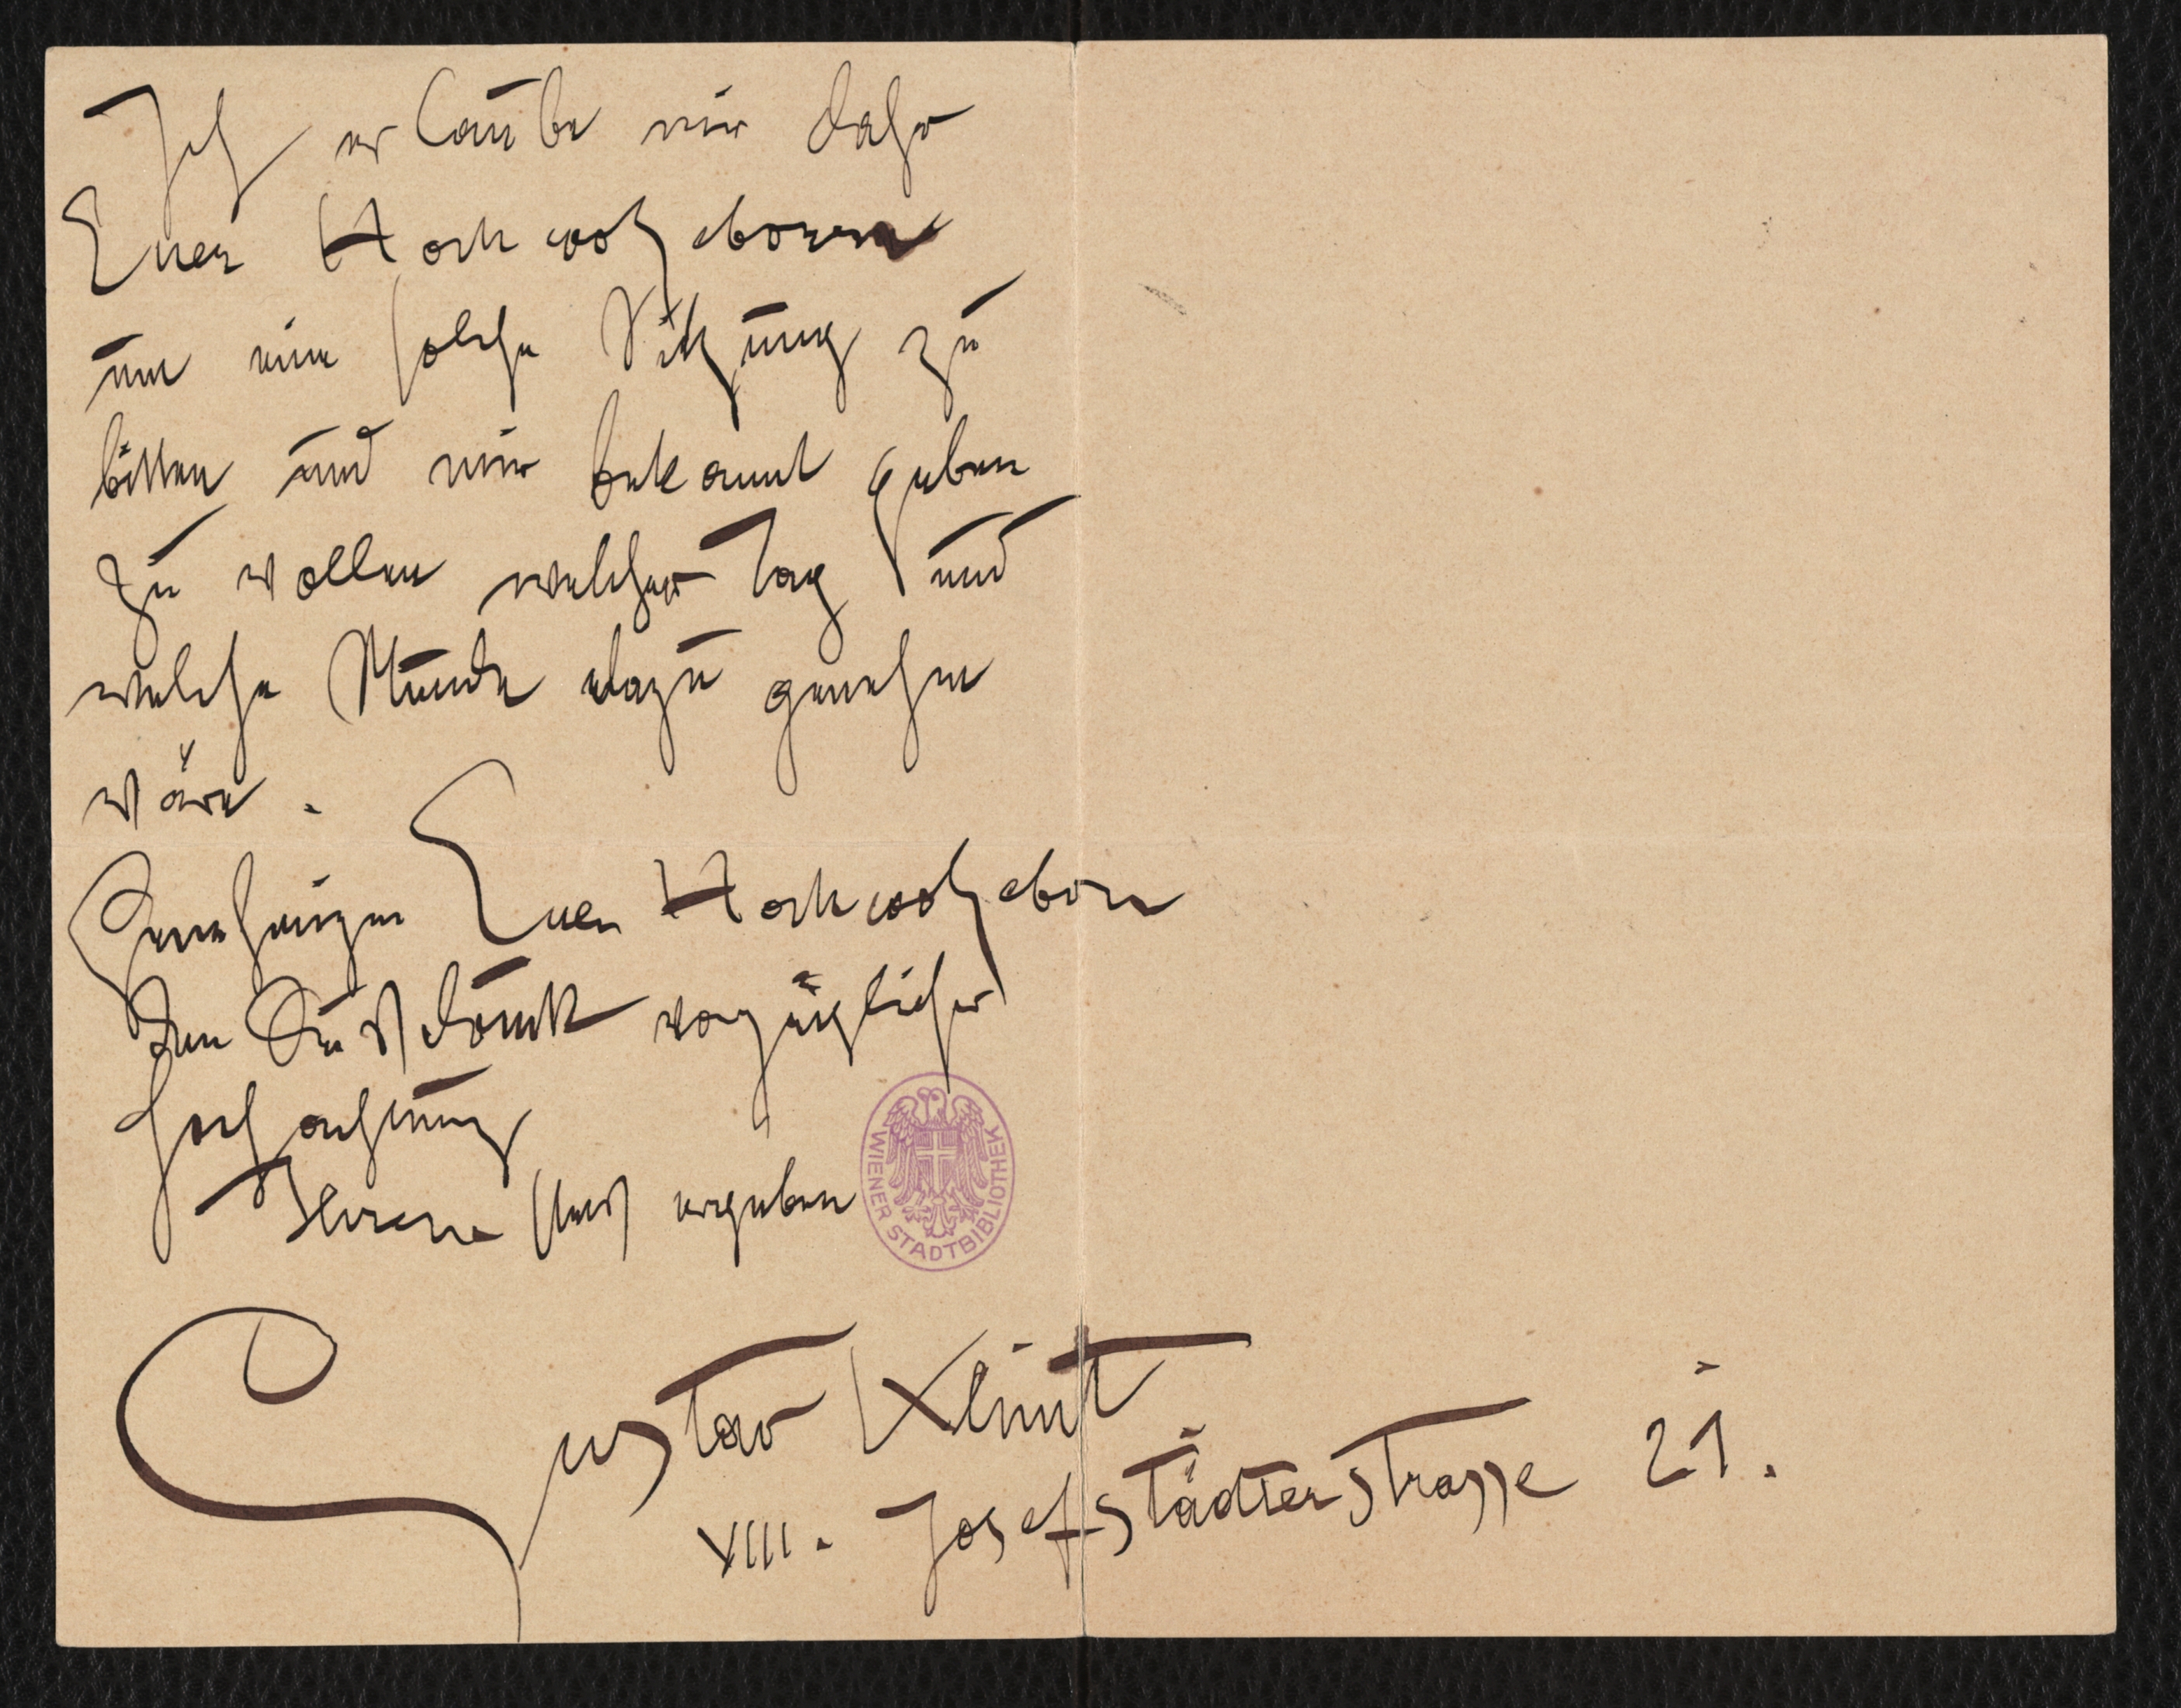 Ich erlaube mir daher
Euer Hochwolgeboren
um eine solche Sitzung zu
bitten und mir bekannt geben
zu wollen welcher Tag und
welche Stunde dazu genehm
wäre.
Genehmigen Euer Hochwolgeborn
den Ausdruck vorzüglicher
Hochachtung
Ihrem stets ergeben
WIENER STADTBIBLIOTHEK
Gustav Klimt
VIII. Josefstädterstrasse 21.